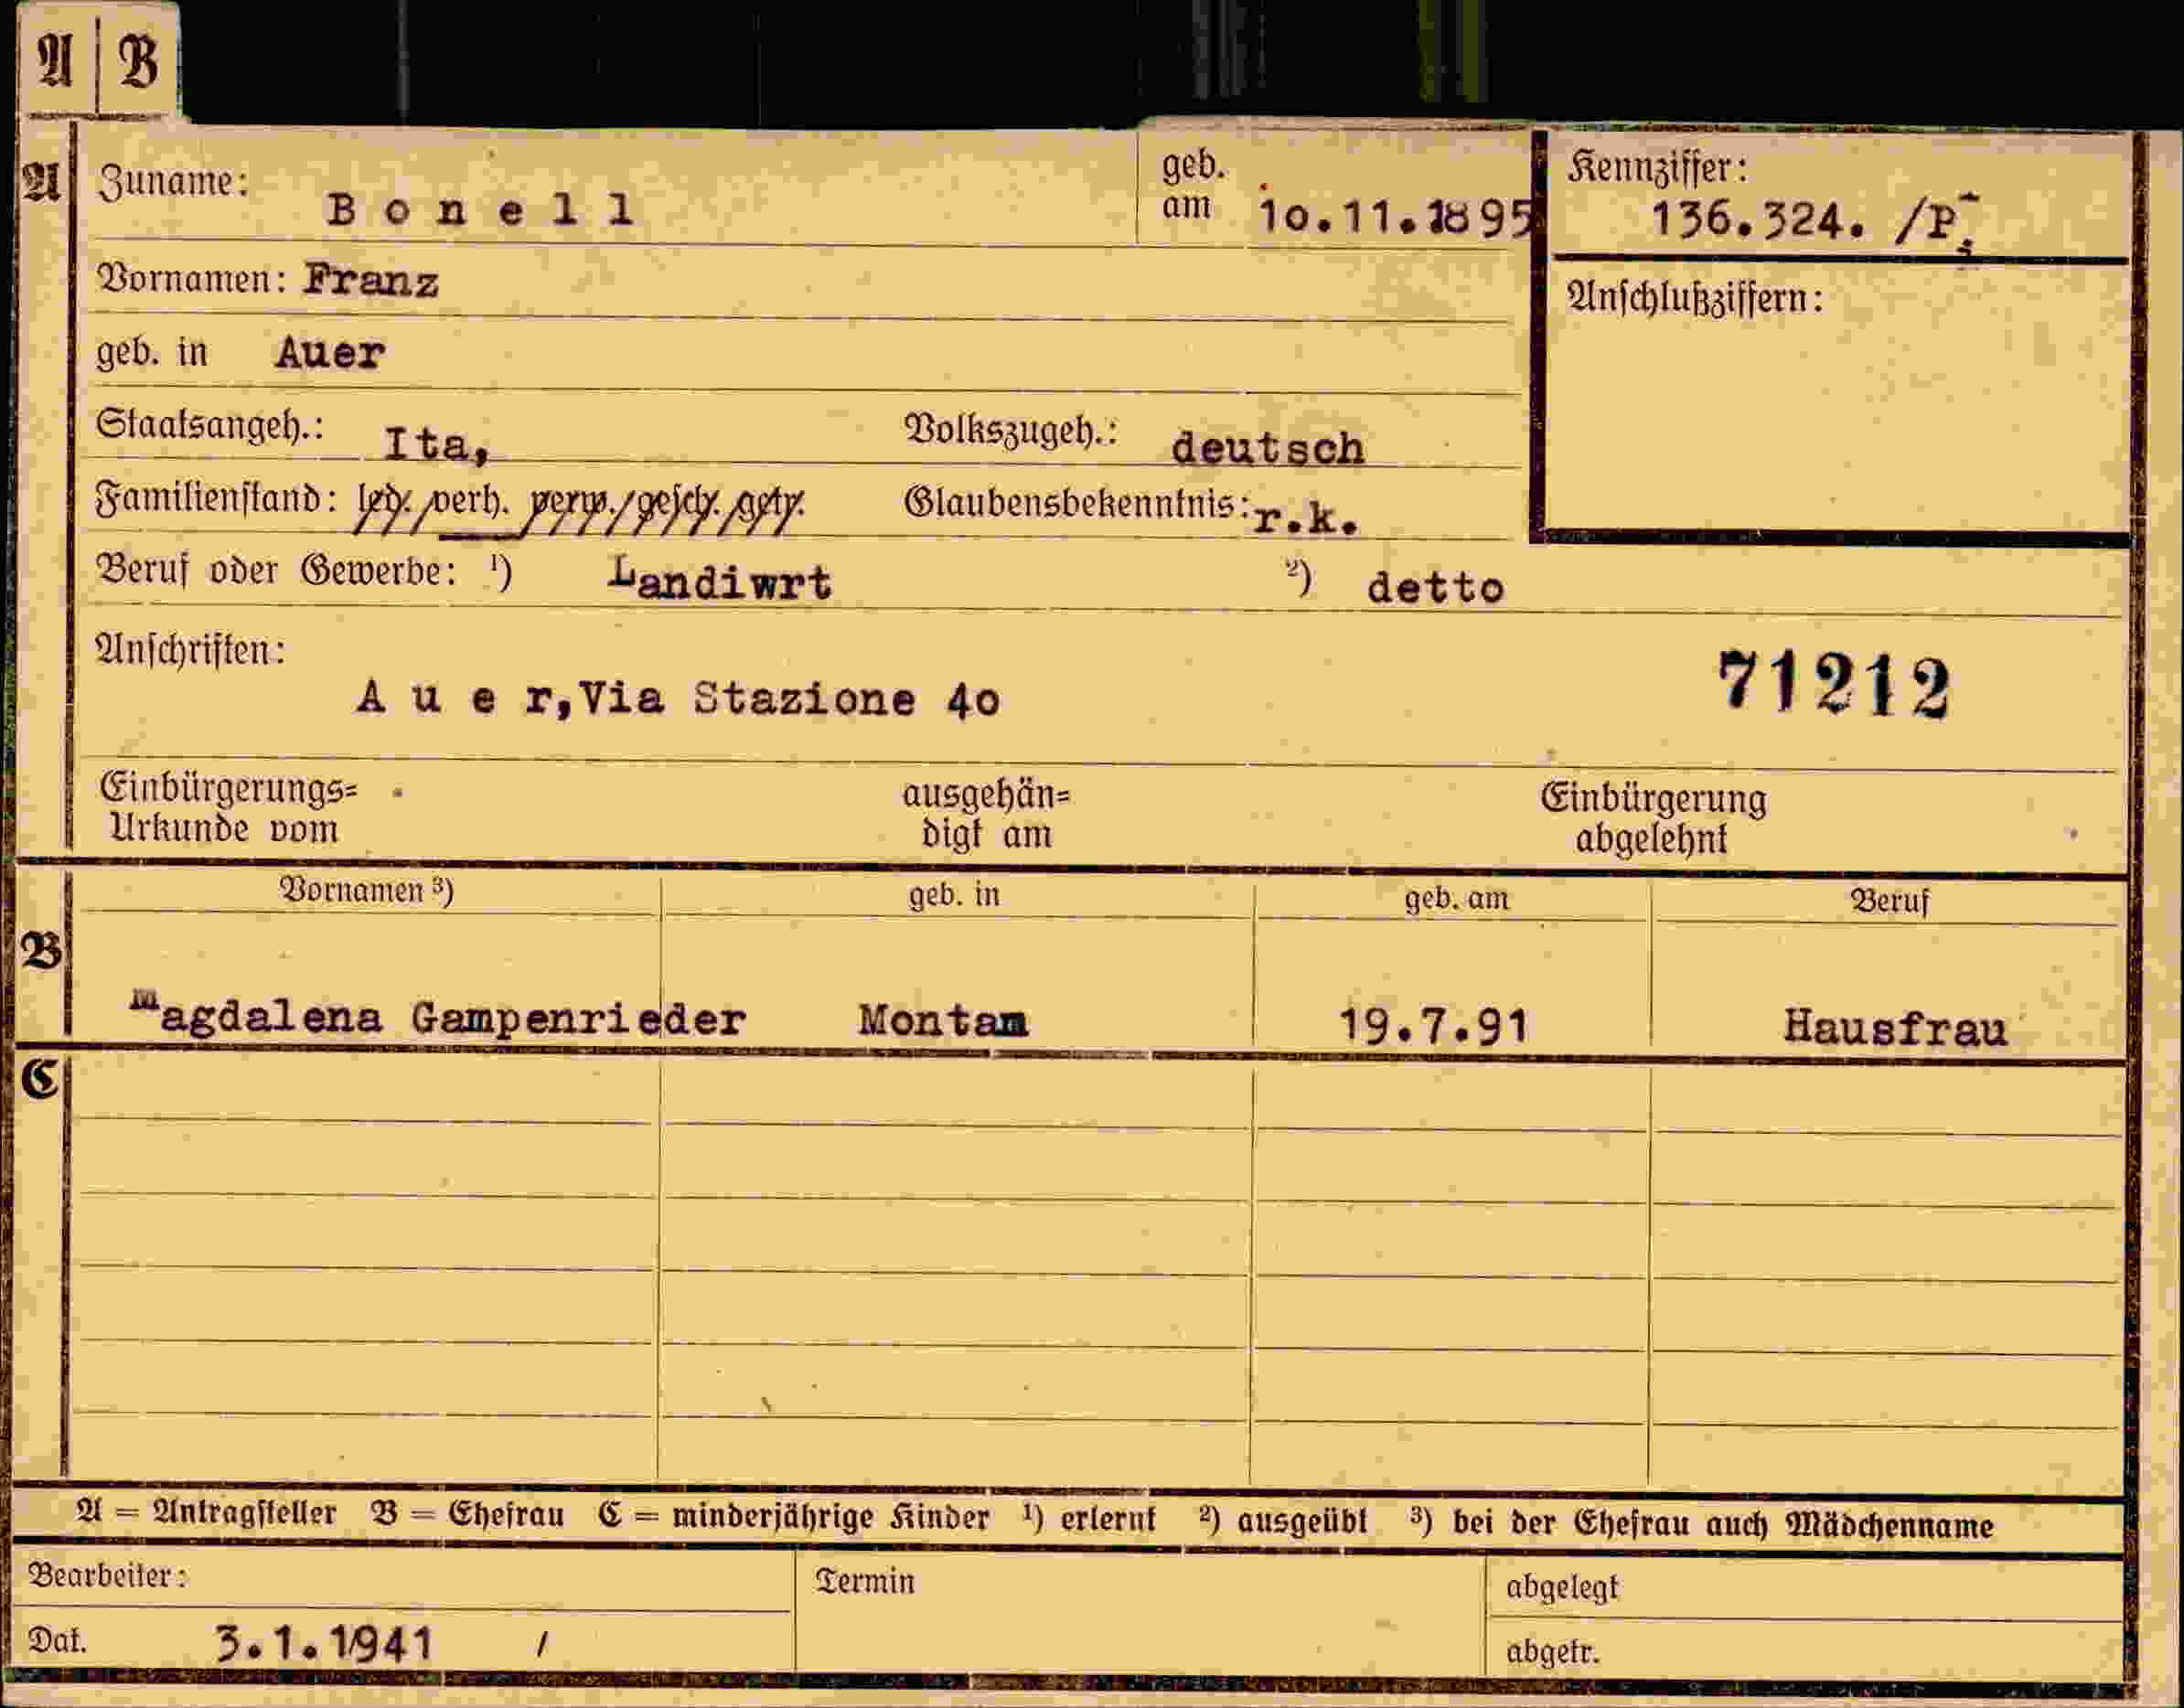 A | B
A Zuname: B o n e l l geb. am 10.11.1895 Kennziffer: 136.324. /P.
Vornamen: Franz
Anschlußziffern:
geb. in Auer
Staatsangeh.: Ita, Volkszugeh.: deutsch
Familienstand: led./verh. verw./gesch./getr. Glaubensbekenntnis: r.k.
Beruf oder Gewerbe: ¹) Landiwrt ²) detto
Anschriften:
A u e r,Via Stazione 40 71212
Einbürgerungs= Urkunde vom ausgehän= digt am Einbürgerung abgelehnt
Vornamen ³) geb. in geb. am Beruf
B
Magdalena Gampenrieder Montan 19.7.91 Hausfrau
C
A = Antragsteller B = Ehefrau C = minderjährige Kinder ¹) erlernt ²) ausgeübt ³) bei der Ehefrau auch Mädchenname
Bearbeiter: Termin abgelegt
Dat. 3.1.1941 / abgetr.